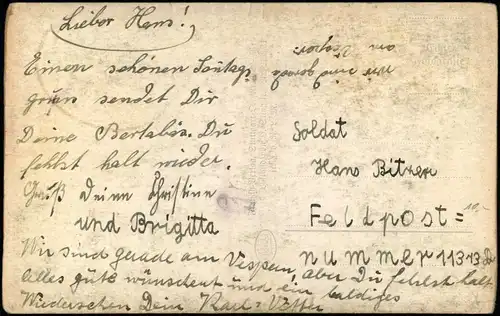 Lieber Hans!
Einen schönen Sontags
gruss sendet Dir
Deine Bertabäs. Du
fehlst halt wieder.
Gruß Deine Christine
und Brigitta
Wir sind gerade am Vespern, aber Du fehlst halt
Alles gute wünschent und ein baldiges
Wiedersehen Dein Karl-Vetter
Soldat
Hans Bitzer
Feldpost=
nummer 11313
10,-